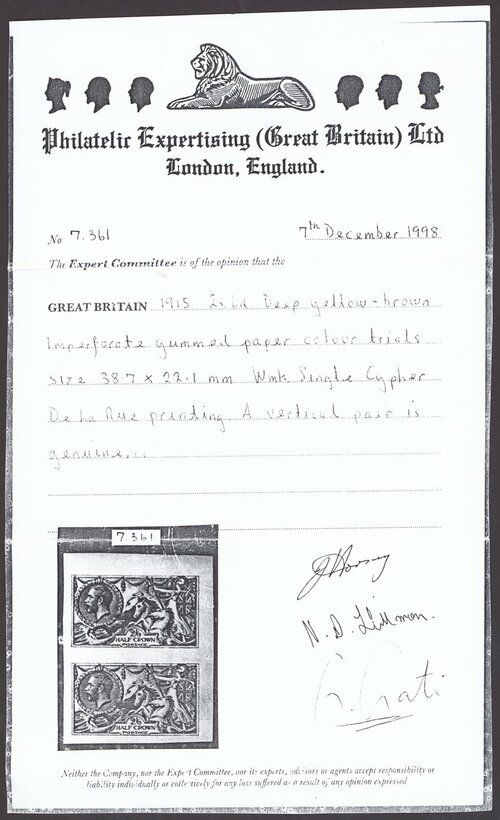 Philatelic Expertising (Great Britain) Ltd
London, England.
No 7.361
7th December 1998
The Expert Committee is of the opinion that the
GREAT BRITAIN 1915 2s6d Deep yellow-brown
Imperforate gummed paper colour trials
size 38.7 x 22.1 mm Wmk. Single Cypher
De La Rue printing. A vertical pair is
genuine...
7.361
2/6
HALF CROWN
POSTAGE
2/6
HALF CROWN
POSTAGE
N. D.
Neither the Company, nor the Expert Committee, nor its experts, advisors or agents accept responsibility or
liability individually or collectively for any loss suffered as a result of any opinion expressed